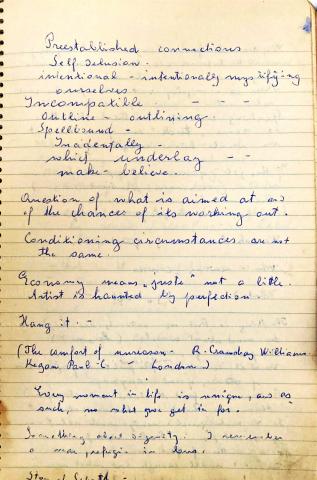 Preestablished connections
Self-delusion.
intentional - intentionally mystifying
ourselves.
Incompatible - - -
Outline - outlining.
Spellbound -
Inadentally -
which underlay - -
make-believe.
Question of what is aimed at and
of the chances of its working out.
Conditioning circumstances are not
the same.
Economy means "juste" not a little.
Artist is haunted by perfection.
Hang it. -
(The comfort of unreason - R. Crawshay Williams.
Kegan Paul - London)
Every moment in life is unique, and as
such, no what you get in for.
Something about dignity. I remember
a man, refugie in